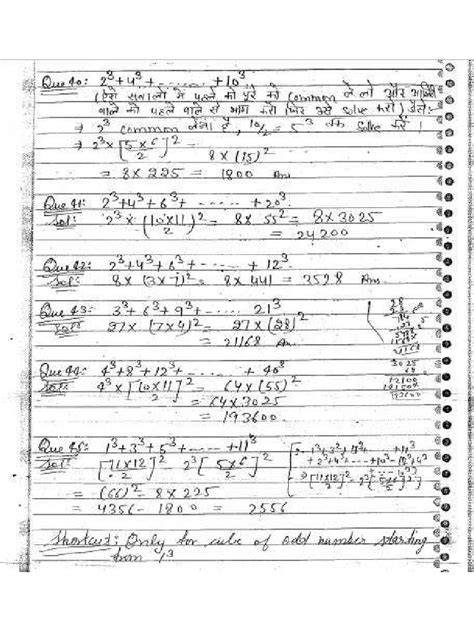 Que 40: 2³+4³+ ....... +10³
(ऐसे सवालों में पहले को पूरे को common ले लो और
वाले को पहले वाले से भाग करो फिर उसे solve करो) जैसे:
⇒ 2³ common लेना है, 10/2 = 5³ तक solve करें।
⇒ 2³×[5×6/2]² = 8×(15)²
= 8×225 = 1800 Ans
Que 41: 2³+4³+6³+ ....... +20³
Sol: 2³×(10×11/2)² = 8×55² = 8×3025
= 24200
Que 42: 2³+4³+6³+ ...... +12³
Sol: 8×(3×7)² = 8×441 = 3528 Ans
Que 43: 3³+6³+9³+ ..... 21³
Sol: 27×(7×4)² = 27×(28)²
= 21168 Ans
Que 44: 4³+8³+12³+ ...... + 40³
Sol: 4³×[10×11/2]² = 64×(55)²
= 64×3025
= 193600.
3025
64
12100
193600
Que 45: 1³+3³+5³+ ...... +11³
Sol: [11×12/2]² - 2³[5×6/2]²
= (66)² - 8×225
= 4356 - 1800 = 2556
Shortcut: Only for cube of odd number starting
from 1³